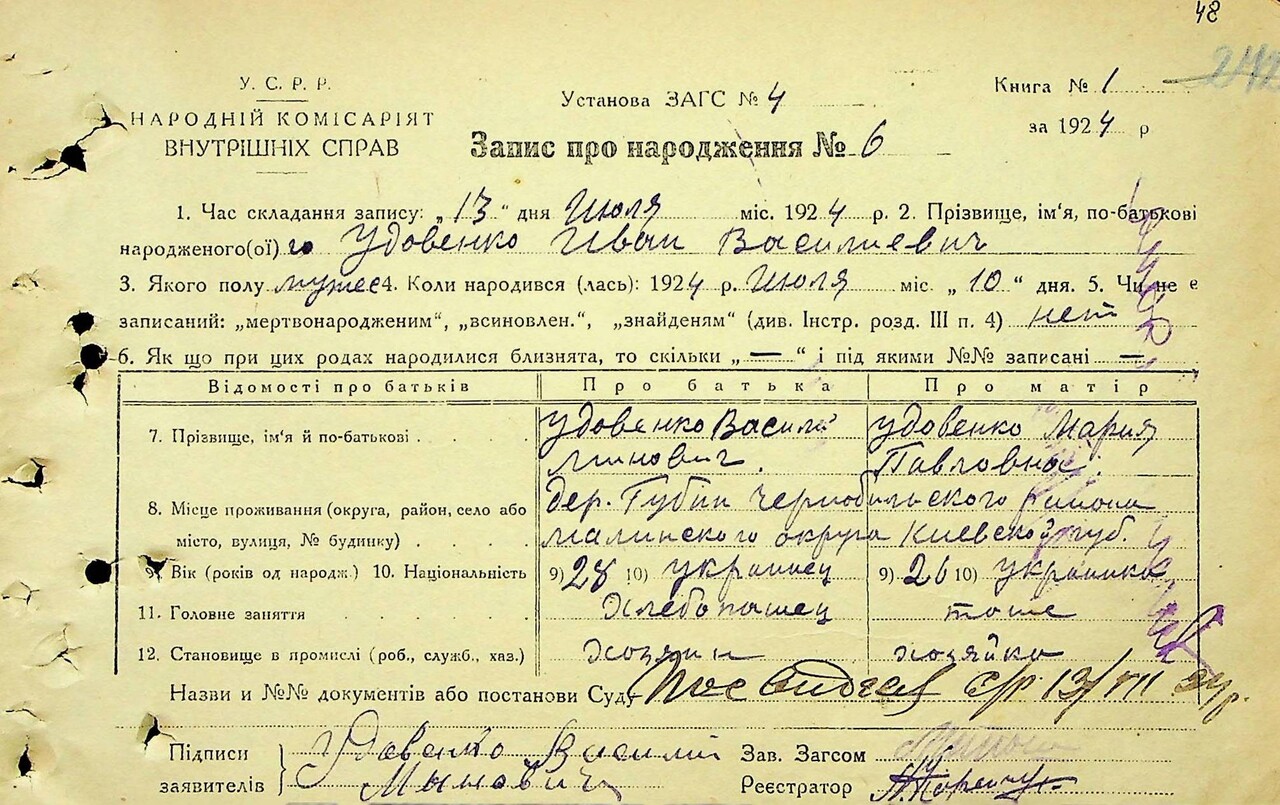 48
У. С. Р. Р.
НАРОДНІЙ КОМІСАРІЯТ
ВНУТРІШНІХ СПРАВ
Установа ЗАГС № 4
Книга № 1
за 1924 р
Запис про народження № 6
1. Час складання запису: „13“ дня Июля міс. 1924 р. 2. Прізвище, ім‘я, по-батькові
народженого(ої) го Удовенко Иван Василиевич
3. Якого полу мужес 4. Коли народився (лась): 1924 р. Июля міс. „10“ дня. 5. Чи не є
записаний: „мертвонародженим“, „всиновлен.“, „знайденям“ (див. Інстр. розд. III п. 4) нет
6. Як що при цих родах народилися близнята, то скільки „—“ і під якими №№ записані —
Відомості про батьків Про батька Про матір
7. Прізвище, ім‘я й по-батькові Удовенко Василий Минович. Удовенко Мария Павловна.
8. Місце проживання (округа, район, село або
місто, вулиця, № будинку) дер. Губин Чернобыльского района
Малинского округа Киевской губ.
9. Вік (років од народж.) 10. Національність 9) 28 10) украинец 9) 26 10) украинка
11. Головне заняття Хлебопашец тоже
12. Становище в промислі (роб., служб., хаз.) хозяин хозяйка
Назви и №№ документів або постанови Суду 13/VII
Підписи
заявителів
Удовенко Василий
Минович
Зав. Загсом
Реєстратор